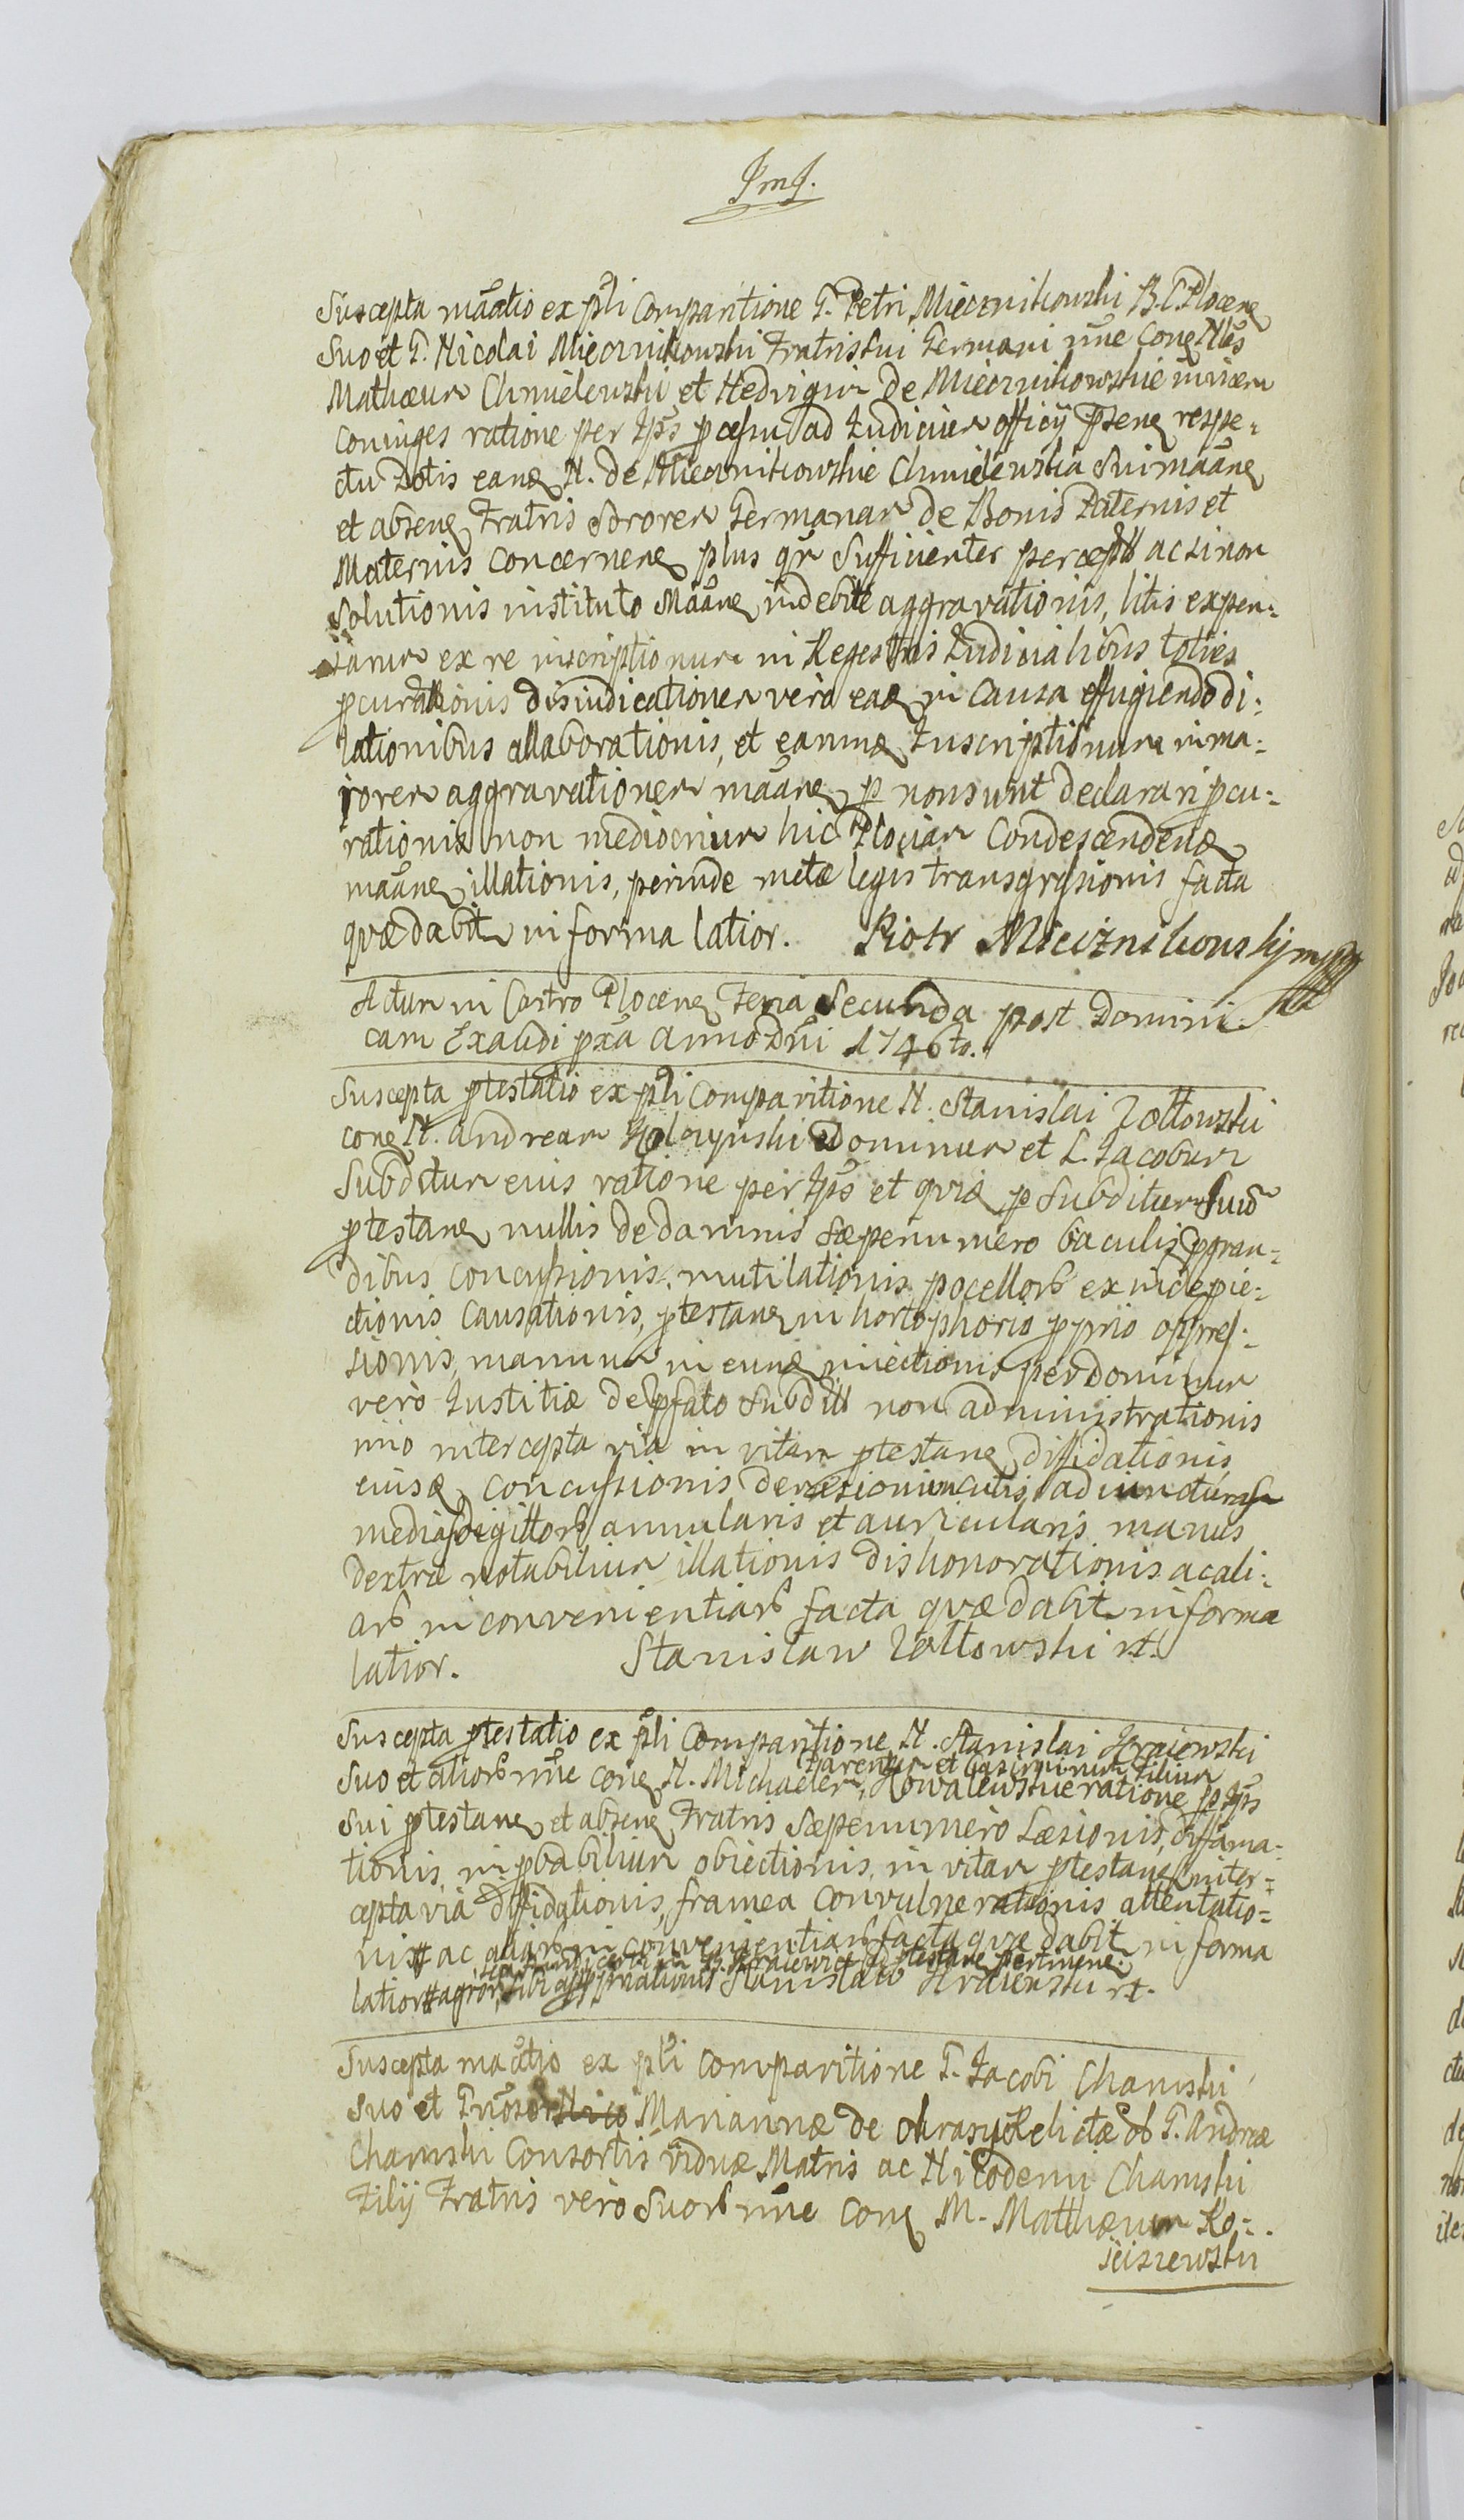 Suscepta mãatio ex pñli Comparitione G. Petri Miecznikowski B. C. Plocenȩ
Suo et G. Nicolai Miecznikowski Fratris Sui Germani nñe Conȩ Nles
Mathæum Chmielewski et Hedvigim de Miecznikowskie invicem
Coniuges ratione per Ipõs pcessu ad Iudicium officij psenȩ respe-
ctu Dotis eanȩ N. de Miecznikowskie Chmielewska Sui mãanȩ
et absenȩ Fratris Sororem Germanam de Bonis Paternis et
Maternis Concernenȩ plus qm Sufficienter percept ac si non
Solutionis instituto Mãanȩ indebite aggravationis, litis expen-
sarum ex re inscriptionum in Regestris Iudicialibus toties
pcurationis disiudicationem vero eaȩ in Causa effugiendo di-
lationibus allaborationis, et earumȩ Inscriptionum in ma-
iorem aggravationem mãanȩ p non sunt Declarari pcu-
rationis non mediocrium hic Plociam Condescendenȩ
mãanȩ illationis, perinde metæ legis transgressionis facta
quæ dabitr in forma latior. Piotr Miecznikowski mpp
Actum in Castro Plocenȩ Feria Secunda post Domini-
cam Exaudi pxã Anno Dñi 1746to.
Suscepta ptestatio ex pñli Comparitione N. Stanislai Zołtowski
Conȩ N. Andream Dominum et L. Iacobum
Subditum eius ratione per Ipõs et quia p Subditum Suũ
ptestanȩ nullis de damnis sæpenumero baculis ppran-
dibus Concussionis, mutilationis pocellorb ex inde pie-
ctionis Causationis, ptestanȩ in horto phorio pprio oppres-
sionis, manuum in eunȩ iniectionis per dominum
vero Iustitiæ de pfato Subdit non administrationis
imo intercepta via in vitam ptestanȩ diffidationis,
eiusȩ concussionis deræsionum cutis ad iuncturam
medias digittorb annularis et auricularis manus
dextræ notabilium illationis dishonorationis ac ali-
arb inconvenientiarb facta quæ dabitr in forma
latior. Stanisław Zołtowski rt.
Suscepta ptestatio ex pñli Comparitione N. Stanislai Kraiewski
Parentem et Casimirum Filium
Suo et aliorb nñe conȩ N. Michaelem Kowalewskie ratione p Ipõs
Sui ptestanȩ et absenȩ Fratris Sæpenumero Læsionis, diffama-
tionis, inpbabilium obiectionis, in vitam ptestanȩ inter-
cepta via diffidationis, framea Convulnerationis attentatio-
nis # ac aliarb inconvenientiarb facta quæ dabitr in forma
Kraiewicz ad ptestanȩ pertinenȩ
latior # agrorb sibi appropriationis Stanisław Kraiewski rt.
Suscepta mãatio ex pñli Comparitione G. Iacobi Chamski
Suo et Gnõsorb Mariannæ de Relictæ ol G. Andreæ
Chamski Consortis viduæ Matris ac Nicodemi Chamski
Filij Fratris vero Suorb nñe Conȩ M. Matthæum Ko-
sciszewski